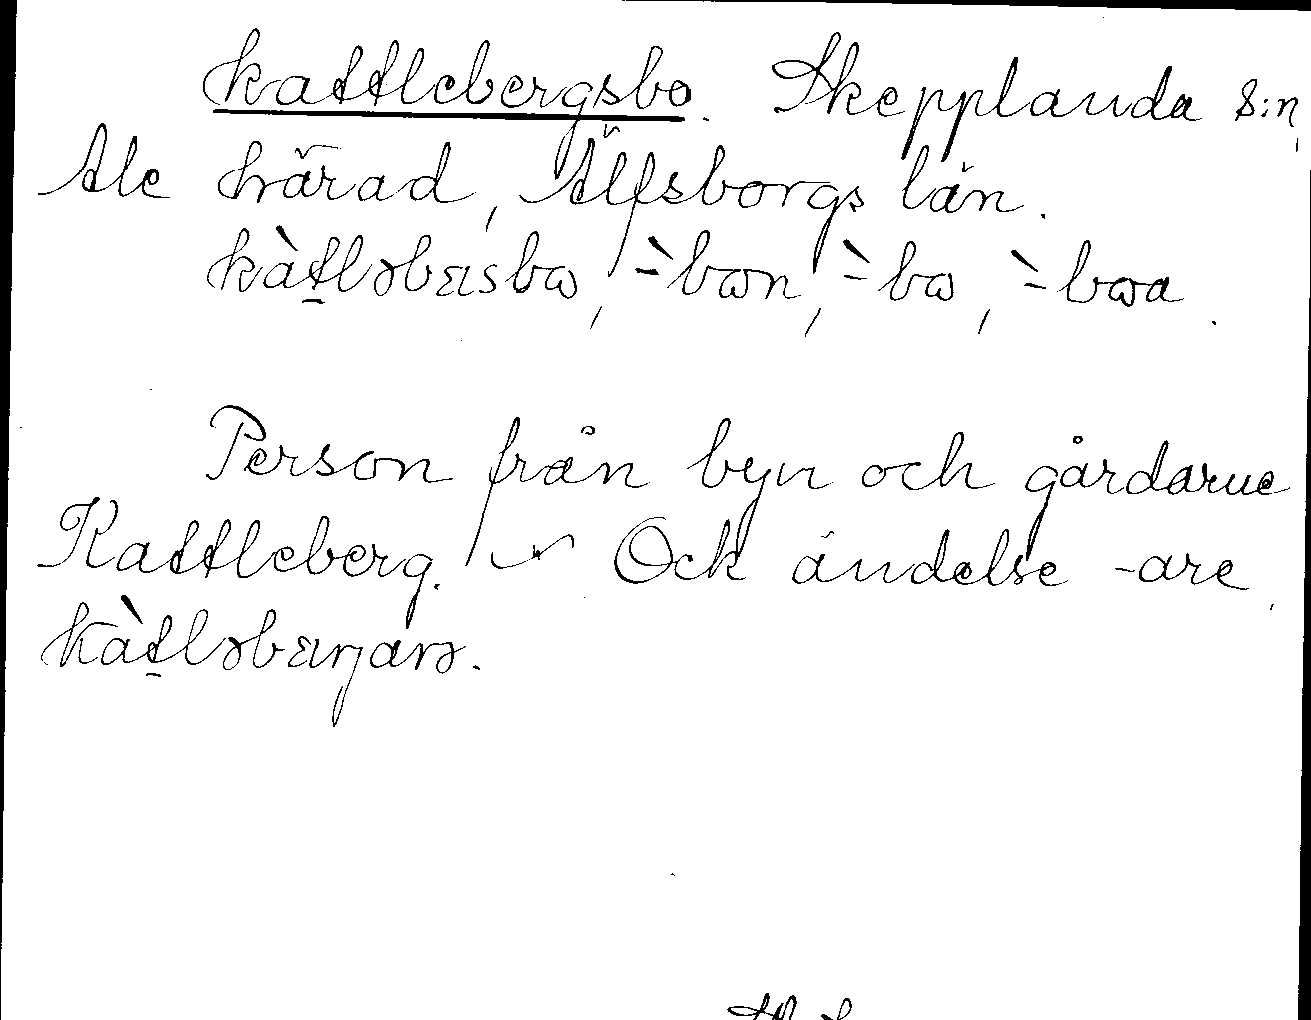 kattlebergsbo. Skepplanda s:n,
Ale härad, Älfsborgs län.
kàt̠ləbæsbɷ, -̀bɷn, -̀bɷ, -̀bɷa.
Person från byn och gårdarne
Kattleberg. Ock ändelse -are,
kàt̠ləbæŋarə.